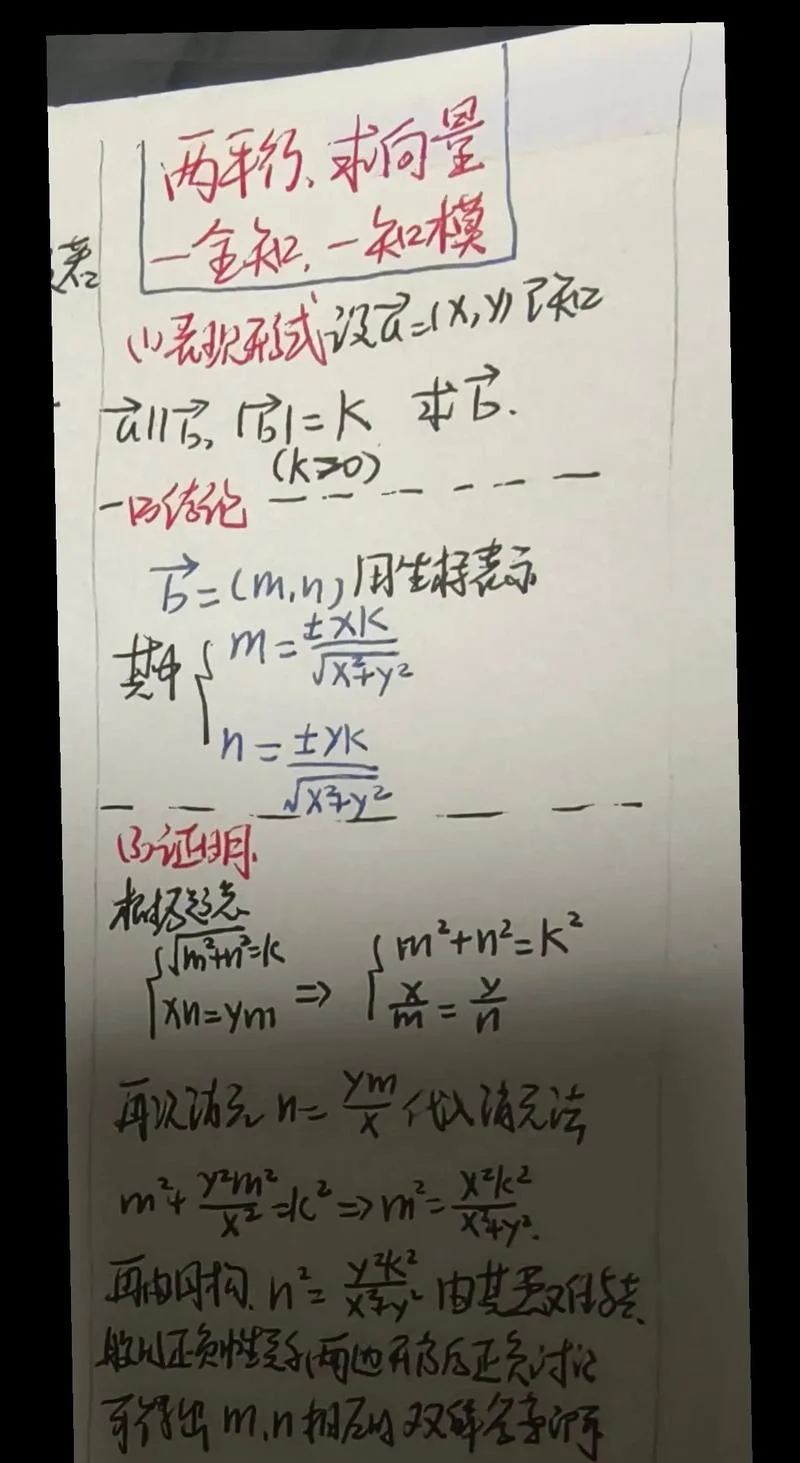 两平行、求向量
一全知、一知模
(1)表现形式 设a⃗=(x,y)已知
a⃗∥b⃗, |b⃗|=k 求b⃗.
(k≥0)
(2)结论
b⃗=(m,n) 用坐标表示
其中 { m=±xk/√(x²+y²)
n=±yk/√(x²+y²)
(3)证明.
根据题意
{ √(m²+n²)=k
xn=ym ⇒ { m²+n²=k²
x/m = y/n
再次消元 n=ym/x 代入消元法
m²+y²m²/x²=k² ⇒ m²=x²k²/(x²+y²).
再由同构、n²=y²k²/(x²+y²) 由其
正负性 两边开方后正负讨论
可得出 m,n 相应的双解